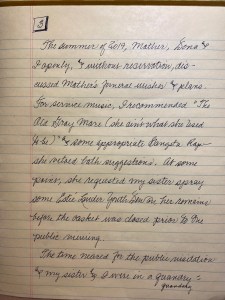 5
The summer of 2019, Mother, Lona &
I openly, & without reservation, dis-
cussed Mother's funeral wishes & plans.
For service music, I recommended "The
Old Gray Mare (she ain't what she used
to be)" & some appropriate Gangsta Rap—
she vetoed both suggestions. At some
point, she requested my sister spray
some Estee Lauder Youth Dew on her remains
before the casket was closed prior to the
public viewing.
The time neared for the public visitation
& my sister & I were in a quandry =
quandary